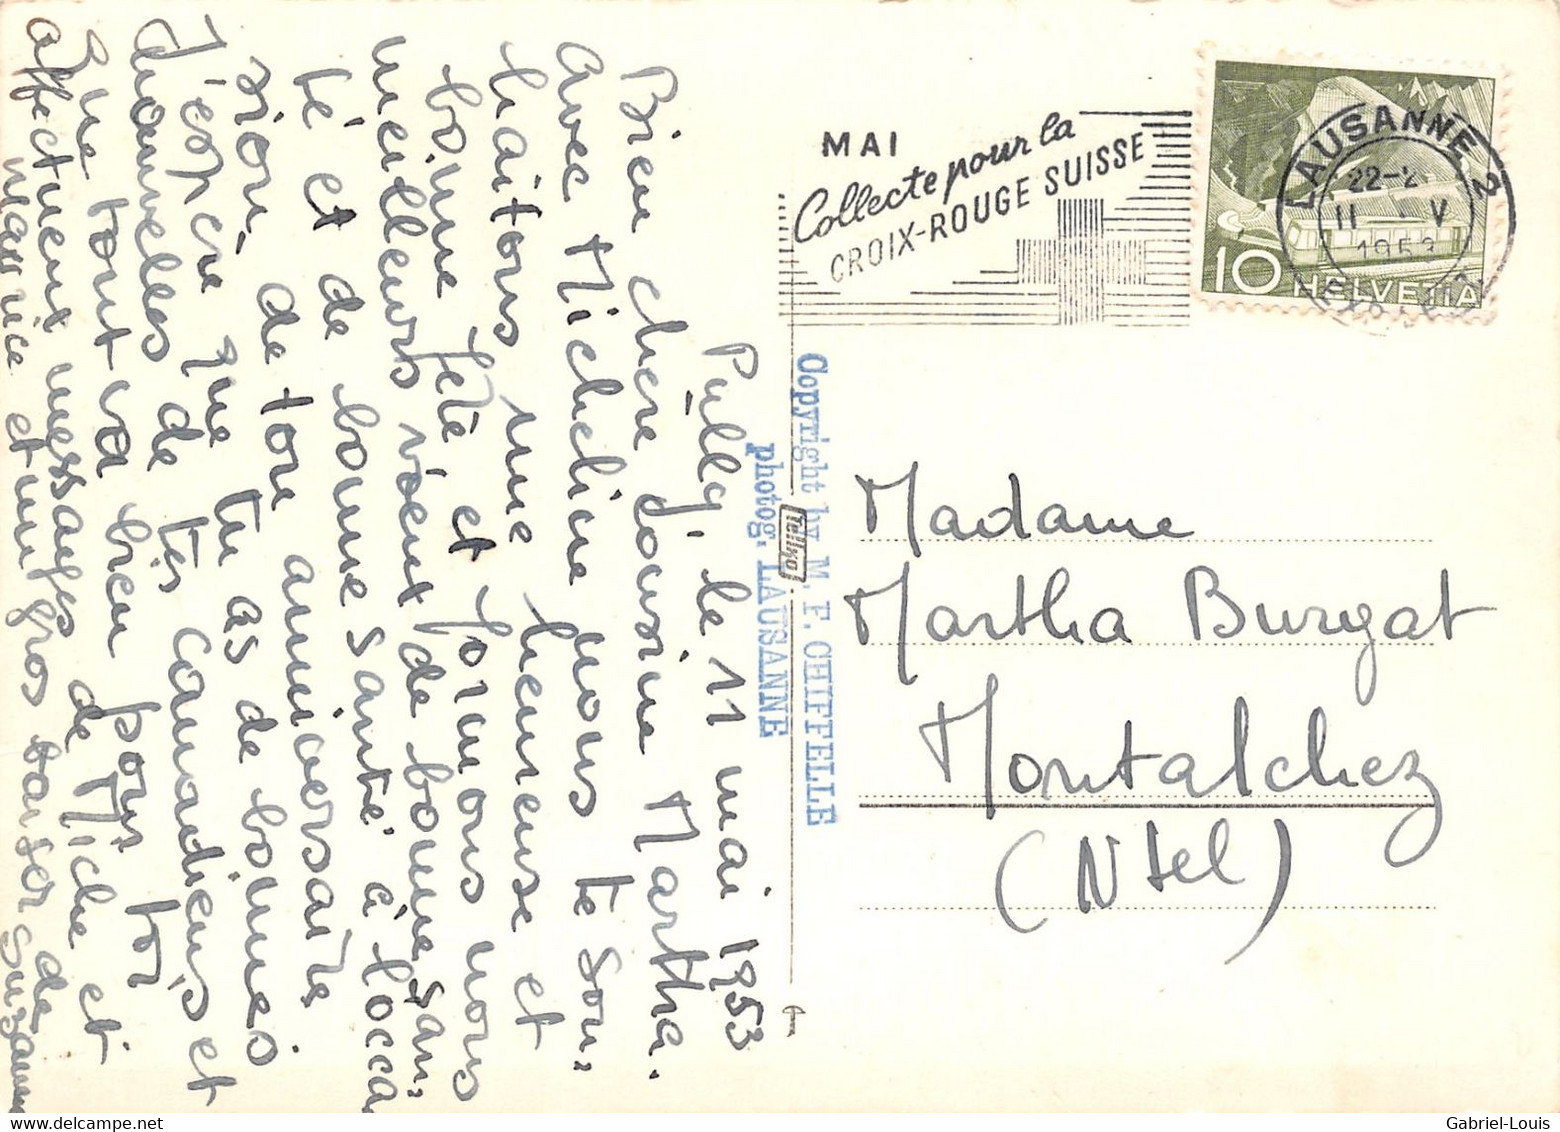 Pully, le 11 mai 1953
Bien chère Cousine Martha.
Avec Micheline nous te sou,
haitons une heureuse et
bonne fête, et formons nos
meilleurs vœux de bonne san,
té et de bonne santé à l'occa
sion, de ton anniversaire
J'espère que tu as de bonnes
nouvelles de tes Canadiens et
que tout va bien pour toi
affectueux messages de Miche et
Maurice et un gros baiser de
Suzanne
MAI
Collecte pour la
CROIX-ROUGE SUISSE
LAUSANNE 2
22-2
11 - V
1953
10 HELVETIA
Copyright by M. F. CHIFFELLE
photog, LAUSANNE
Tellko
Madame
Martha Burgat
Montalchez
(Ntel)
Gabriel-Louis